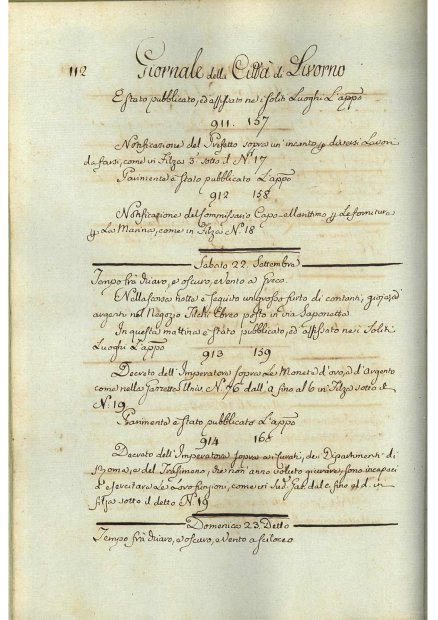 112 Giornale della Città di Livorno
È stato pubblicato, ed affissato nei soliti Luoghi L'appo
911. 157
Notificazione del Prefetto sopra un'incanto p diversi Lavori
da farsi, come in Filza 3ª sotto d. Nº 17
Parimente è stato pubblicato L'appo
912 158
Notificazione del Commissario Capo Marittimo p Le forniture
p La Marina, come in Filza Nº 18
Sabato 22. Settembre
Tempo frà chiaro, e oscuro, e Vento a Greco.
Nella scorsa notte è seguito un grosso furto di contanti, gioje, ed
argenti nel Negozio Ebreo posto in via
In questa mattina è stato pubblicato, ed affissato nei Soliti
Luoghi L'appo
913 159
Decreto dell'Imperatore sopra Le Monete d'oro, e d'argento
come nella Gazzetta Univ. Nº 76 dall' a fino al 6 in Filza sotto d
Nº 19
Parimente è stato pubblicato L'appo
914 160
Decreto dell'Imperatore sopra ai Curati, dei Dipartimenti di
Roma, e del Trasimeno, che non anno voluto giurare, sono incapaci
d'esercitare Le Loro funzioni, come in fino al d in
filza sotto il detto Nº 19
Domenica 23. Detto
Tempo frà chiaro, e oscuro, e Vento a scilocco